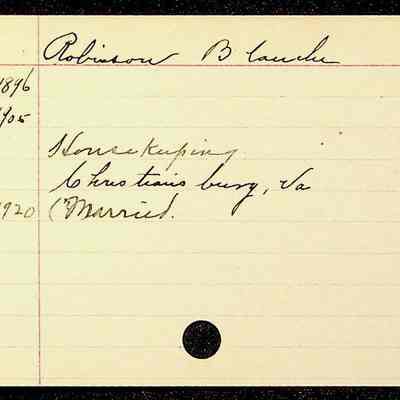 Robinson Blanche
1896
1905
Housekeeping
Christiansburg, Va
1920 (Married.